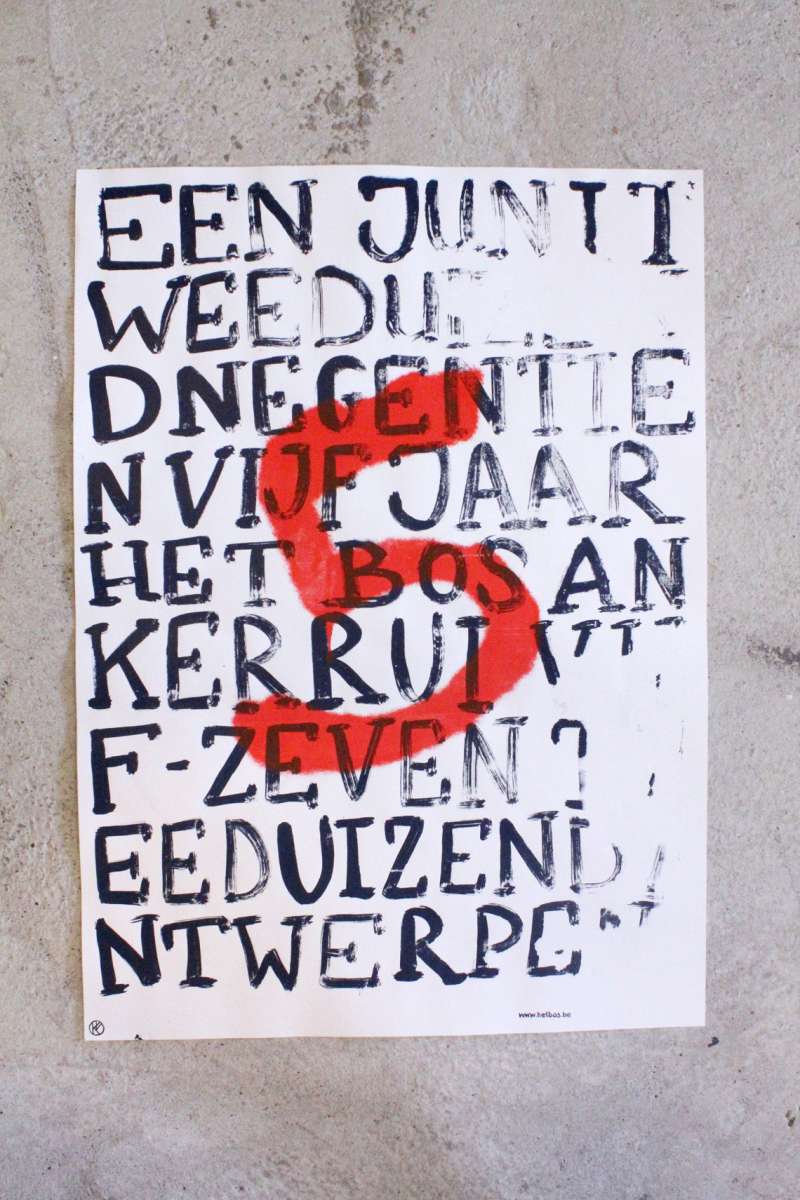 EEN JUNI T
WEEDUI
DNEGENTIE
N VIJF JAAR
HET BOS AN
KERRUI
F-ZEVEN
EEDUIZEND
NTWERPE
5
www.hetbos.be